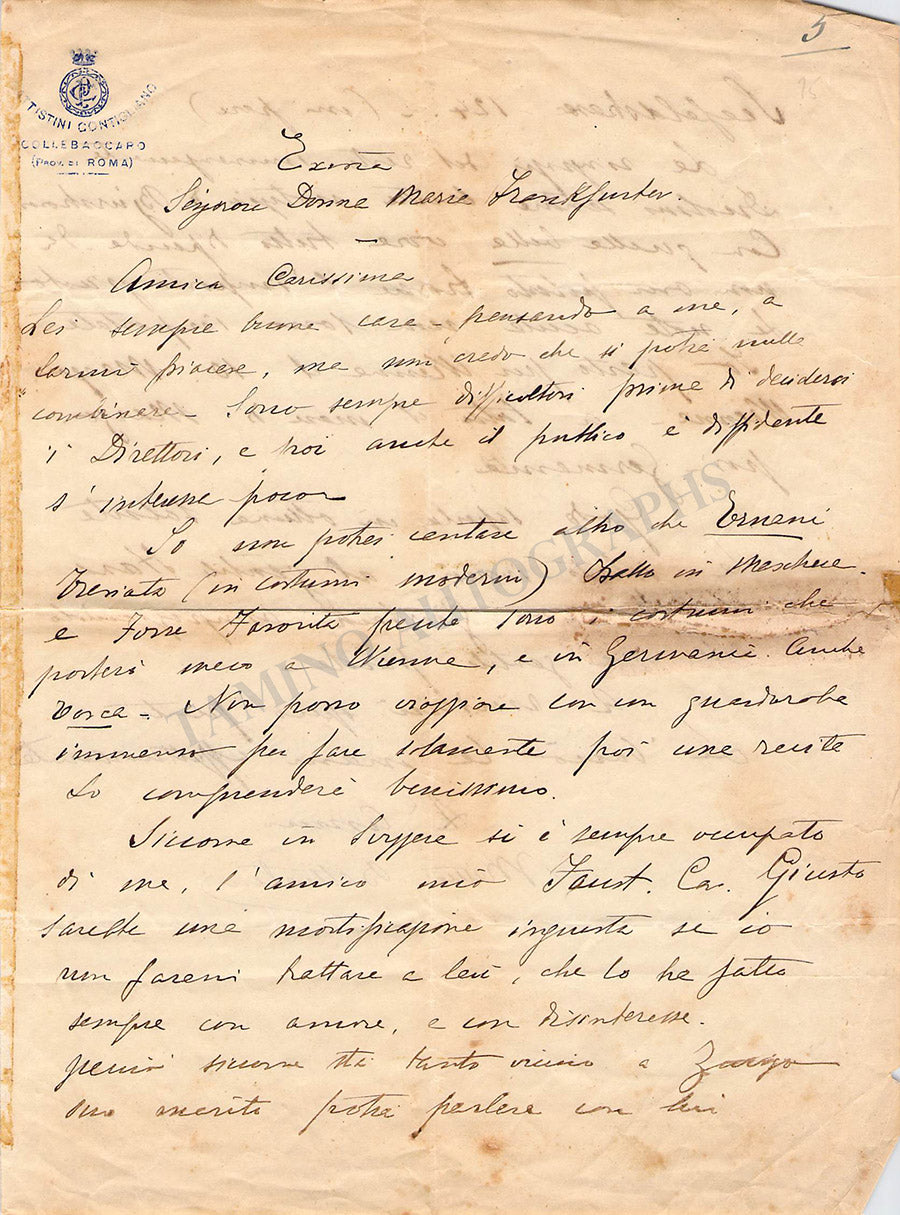 5
TISTINI CONTIGLIANO
COLLEBACCARO
(PROV. DI ROMA)
Signora Donna Maria Frankfurter.
Amica Carissima
Lei sempre buona cara - pensando a me, a
farmi piacere, ma non credo che si potrà nulla
combinare - Sono sempre difficoltosi prima di decidersi
i Direttori, e poi anche il pubblico è diffidente
s'interessa poco
Io non potrei cantare altro che Ernani
Traviata (in costumi moderni) Ballo in Maschera.
e forse Favorita questi sono i costumi che
porterò meco a Vienna, e in Germania. Anche
Tosca - Non posso viaggiare con un guardaroba
immenso per fare solamente poi una recita
Lo comprenderà benissimo.
Siccome in Svizzera si è sempre occupato
di me, l'amico mio Faust. Cav. Giusto
sarebbe una mortificazione ingiusta se io
non facessi trattare a lui, che lo ha fatto
sempre con amore, e con disinteresse.
perciò siccome sta tanto vicino a Zurigo
suo marito potrà parlare con lui
TAMINO AUTOGRAPHS